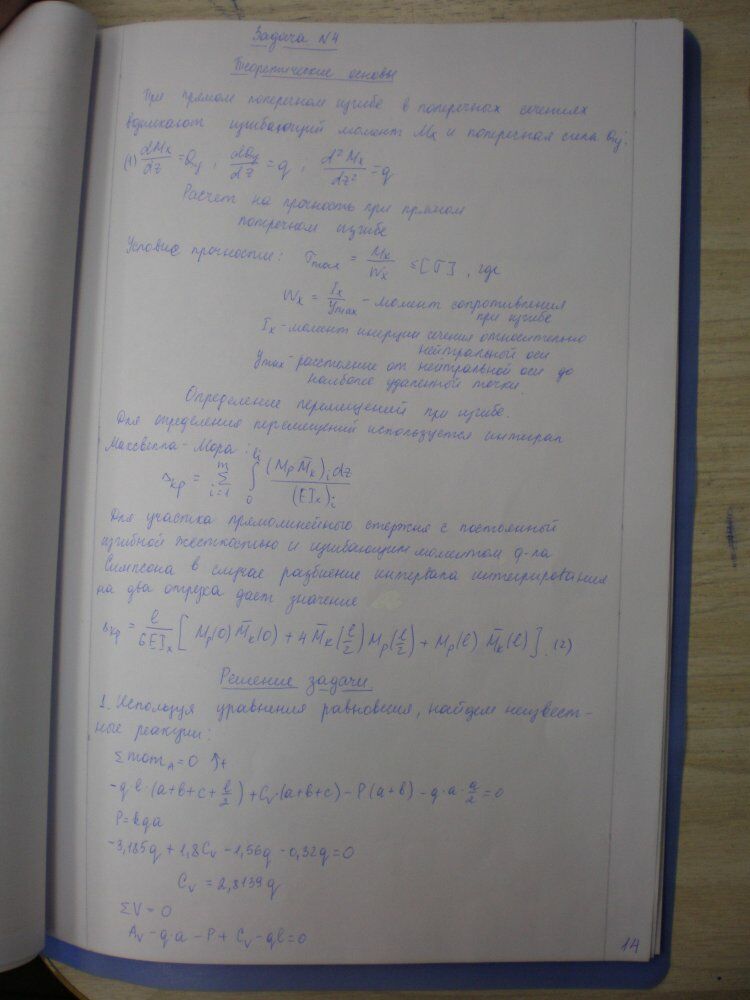 Задача №4
Теоретические основы
При прямом поперечном изгибе в поперечных сечениях
возникают изгибающий момент Mx и поперечная сила Qy.
(1) dMx/dz = Qy ; dQy/dz = q ; d²Mx/dz² = q
Расчет на прочность при прямом
поперечном изгибе
Условие прочности: σmax = Mx/Wx ≤ [σ], где
Wx = Ix/Ymax - момент сопротивления
при изгибе
Ix - момент инерции сечения относительно
нейтральной оси
Ymax - расстояние от нейтральной оси до
наиболее удаленной точки
Определение перемещений при изгибе.
Для определения перемещений используется интеграл
Максвелла-Мора:
Δкр = Σ(i=1, m) ∫(0, li) (Mp M̄к)i dz / (EIx)i
Для участка прямолинейного стержня с постоянной
изгибной жесткостью и изгибающим моментом ф-ла
Симпсона в случае разбиение интервала интегрирования
на два отрезка дает значение
Δкр = l/6EIx [Mp(0) M̄к(0) + 4 M̄к(l/2) Mp(l/2) + Mp(l) M̄к(l)]. (2)
Решение задачи
1. Используя уравнения равновесия, найдем неизвест-
ные реакции:
Σ momA = 0 +
-q·l·(a+b+c+l/2) + Cv·(a+b+c) - P(a+b) - q·a·a/2 = 0
P = kqa
-3,185q + 1,8Cv - 1,56q - 0,32q = 0
Cv = 2,8139q
ΣV = 0
Av - q·a - P + Cv - ql = 0
14